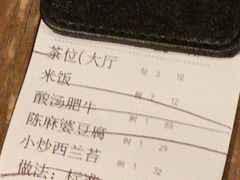 茶位(大厅 位 3 18
米饭 碗 2 12
酸汤肥牛 例 1 69
陈麻婆豆腐 例 1 29
小炒西兰苔 例 1 32
做法: 标准